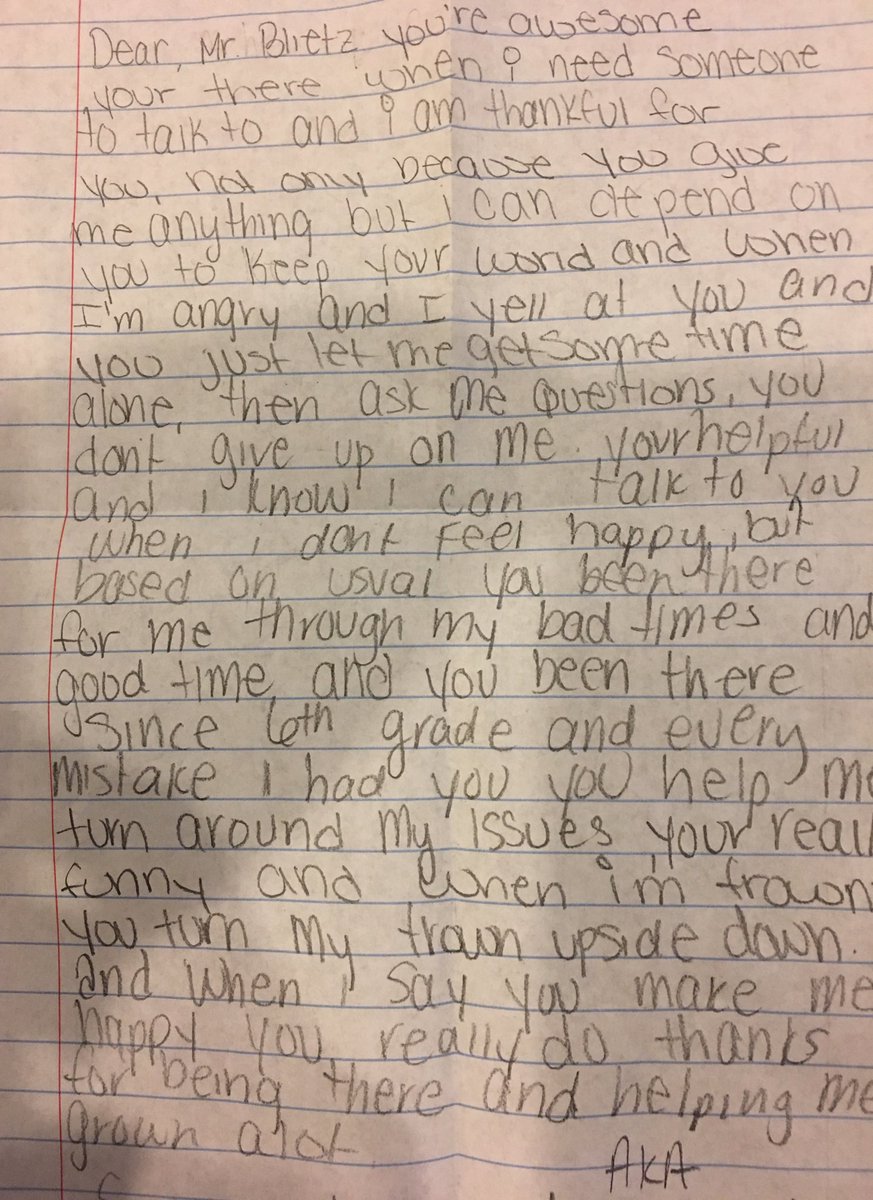 Dear, Mr. Blietz you're awesome
your there when i need someone
to talk to and i am thankful for
you, not only because you give
me anything but i can depend on
you to keep your world and when
I'm angry and I yell at you and
you just let me get some time
alone, then ask me questions, you
don't give up on me. your helpful
and i know i can talk to you
when i dont feel happy, but
based on usual you been there
for me through my bad times and
good time, and you been there
since 6th grade and every
mistake I had you you help me
turn around my issues, your reall
funny and when i'm frown
you turn my frown upside down.
and when i say you make me
happy you, really do thanks
for being there and helping me
grown alot
AKA